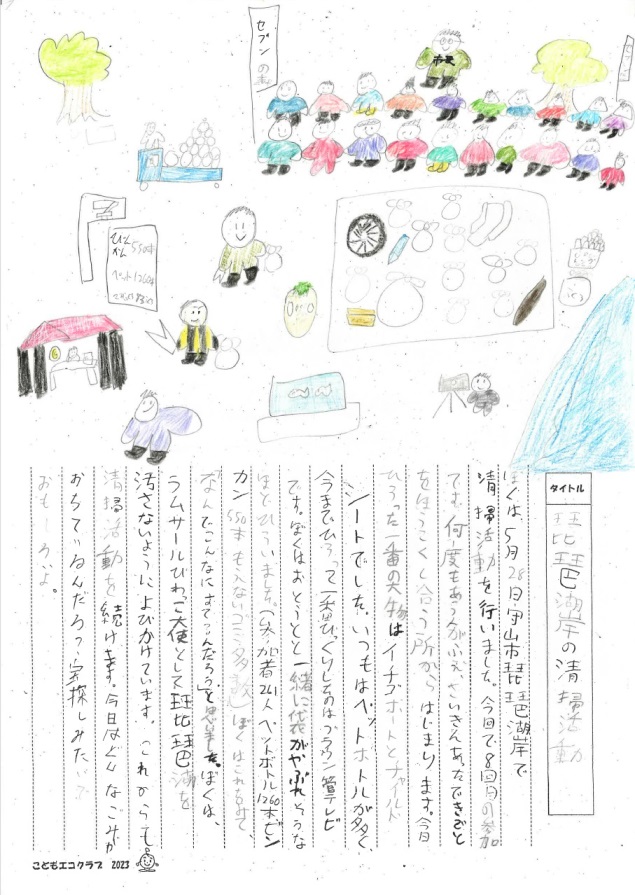 セブンの森
市長
びん
カン 550本
ペット1260本
タイトル
琵琶湖岸の清掃活動
ぼくは、5月28日守山市琵琶湖岸で
清掃活動を行いました。今回で8回目の参加
です。何度もあう人がふえ、さいきんあったできごと
をほうこくし合う所からはじまります。今日
ひろった一番の大物はイチゴボートとチャイルド
シートでした。いつもはペットボトルが多く、
今までひろって一番びっくりしたのはブラウン管テレビ
です。ぼくはおとうとと一緒に袋がやぶれそうな
ほどひろいました。(参加者241人ペットボトル1260本ビン
カン550本もえないゴミ多数)ぼくはこれをみて、
「なんでこんなにすてるんだろう」と思いました。ぼくは、
ラムサールびわっこ大使として琵琶湖を
汚さないようによびかけています。これからも
清掃活動を続けます。今日はどんなごみが
おちているんだろう?宝探しみたいで
おもしろいよ。
こどもエコクラブ 2023